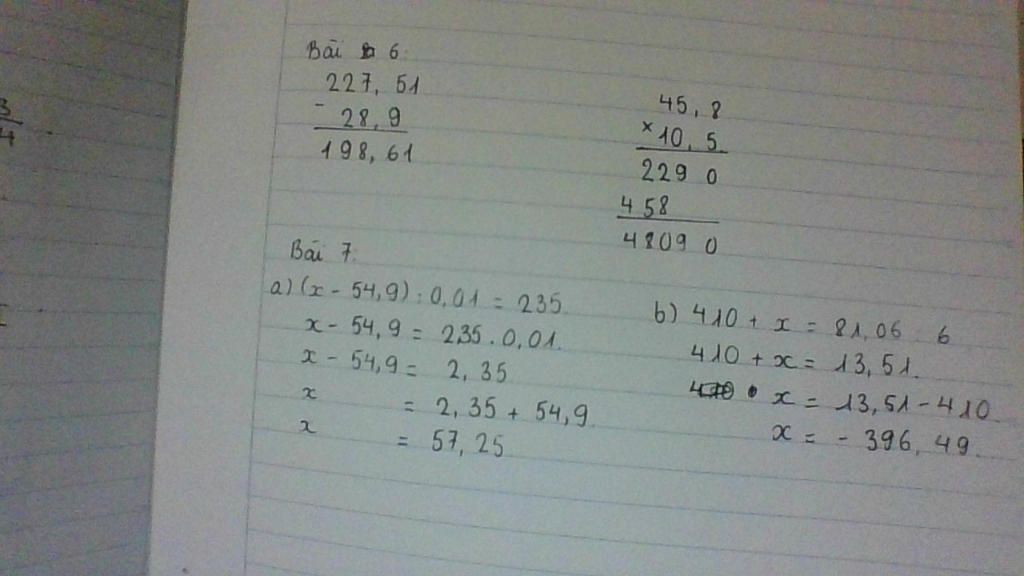 3
4
Bài 6:
227, 51
- 28, 9
198, 61
45, 8
× 10, 5
229 0
458
4809 0
Bài 7:
a) (x - 54,9) : 0,01 = 235.
x - 54,9 = 235 . 0,01.
x - 54,9 = 2, 35
x = 2, 35 + 54,9.
x = 57, 25
b) 410 + x = 81,06 : 6
410 + x = 13, 51.
x = 13,51 - 410
x = - 396, 49.